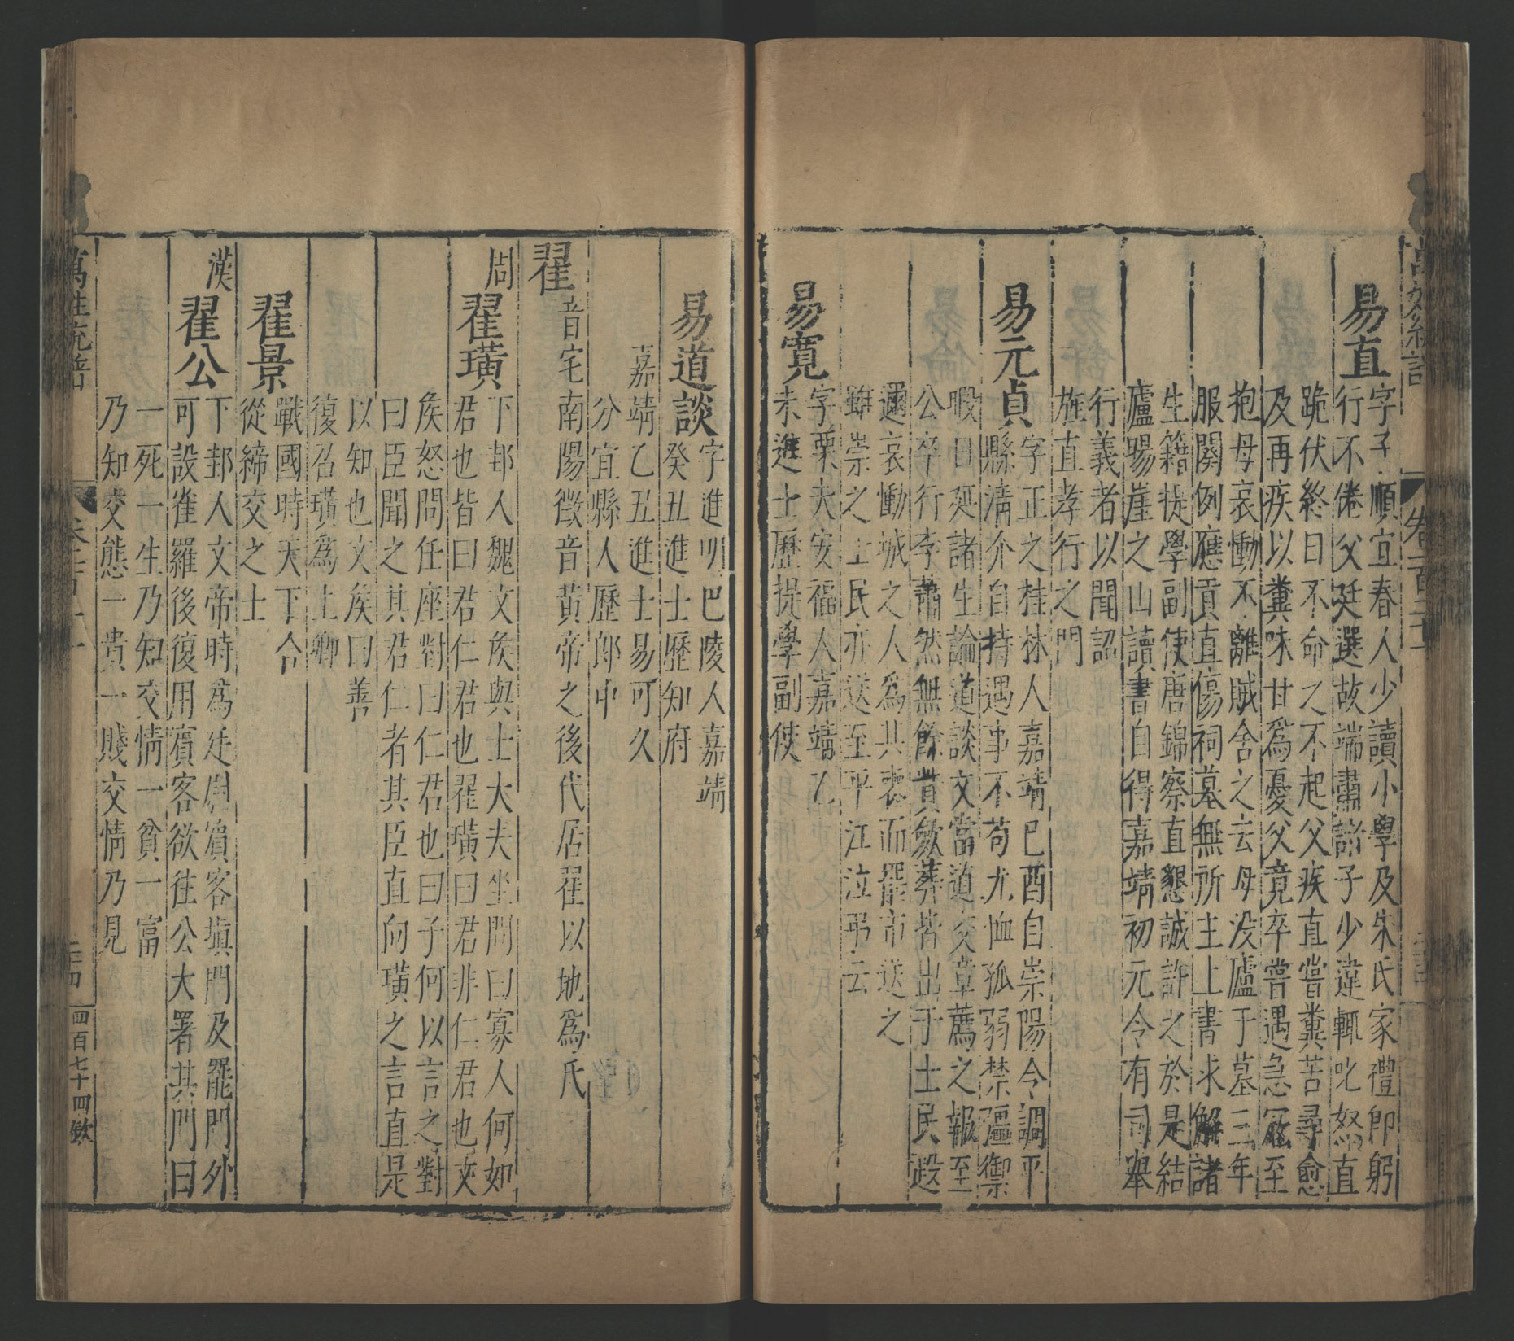 易直
字子順宜春人少讀小學及朱氏家禮即躬
行不倦父廷選故端肅諸子少違輒叱怒直
跪伏終日不命之不起父疾直嘗糞苦尋愈
及再疾以糞味甘為憂父竟卒嘗遇急寇至
抱母哀慟不離賊舍之去母没廬于墓三年
服闋例應貢直傷祠墓無所主上書求解諸
生籍提學副使唐錦察直懇誠許之於是結
廬賜崖之山讀書自得嘉靖初元令有司舉
行義者以聞詔
旌直孝行之門
易元貞
字正之桂林人嘉靖己酉自崇陽令調平
縣清介自持遇事不苟尤恤孤弱禁彊禦
暇日延諸生論道談文當道交章薦之報至
公卒行李蕭然無餘貲斂葬皆出于士民遐
邇哀慟城之人為共喪而罷市送之
崇之士民亦送至平江泣弔云
易寬
字栗夫安福人嘉靖乙
未進士歷提學副使
易道談
字進卿巴陵人嘉靖
癸丑進士歷知府
嘉靖乙丑進士易可久
分宜縣人歷郎中
翟
音宅南陽徵音黃帝之後代居翟以地為氏
周
翟璜
下邽人魏文侯與士大夫坐問曰寡人何如
君也皆曰君仁君也翟璜曰君非仁君也文
侯怒問任座對曰仁君也曰子何以言之對
曰臣聞之其君仁者其臣直向璜之言直是
以知也文侯曰善
復召璜為上卿
翟景
戰國時天下合
從締交之士
漢
翟公
下邽人文帝時為廷尉賓客塡門及罷門外
可設雀羅後復用賓客欲往公大署其門曰
一死一生乃知交情一貧一富
乃知交態一貴一賤交情乃見
萬姓統譜
四百七十四